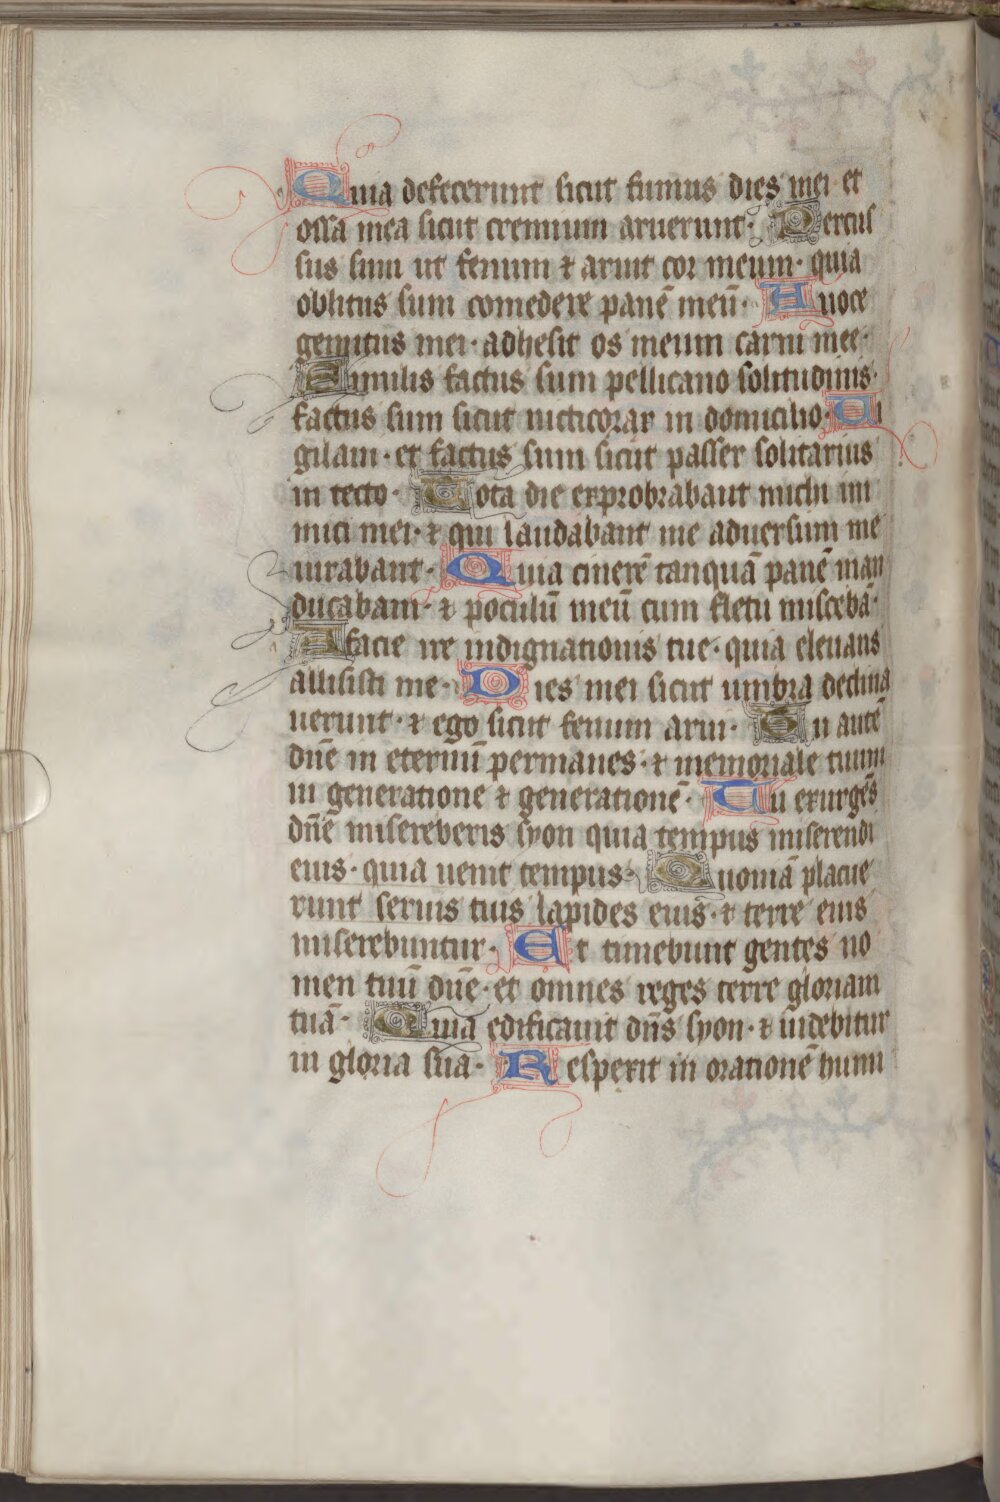 Quia defecerunt sicut fumus dies mei et
ossa mea sicut cremium aruerunt· Percus
sus sum ut fenum ⁊ aruit cor meum· quia
oblitus sum comedere panē meū· A uoce
gemitus mei· adhesit os meum carni mee·
Similis factus sum pellicano solitudinis·
factus sum sicut nicticorax in domicilio· Ui
gilaui· et factus sum sicut passer solitarius
in tecto· Tota die exprobrabant michi ini
mici mei· ⁊ qui laudabant me aduersum me
iurabant· Quia cinerē tanquā panē man
ducabam· ⁊ poculū meū cum fletu miscebā·
A facie ire indignationis tue· quia eleuans
allisisti me· Dies mei sicut umbra declina
uerunt· ⁊ ego sicut fenum arui· Tu autē
dn̄e in eternū permanes· ⁊ memoriale tuum
in generatione ⁊ generationē· Tu exurgēs
dn̄e misereberis syon quia tempus miserendi
eius· quia uenit tempus· Quoniā placue
runt seruis tuis lapides eius· ⁊ terre eius
miserebuntur· Et timebunt gentes no
men tuū dn̄e· et omnes reges terre gloriam
tuā· Quia edificauit dn̄s syon· ⁊ uidebitur
in gloria sua· Respexit in orationē humi